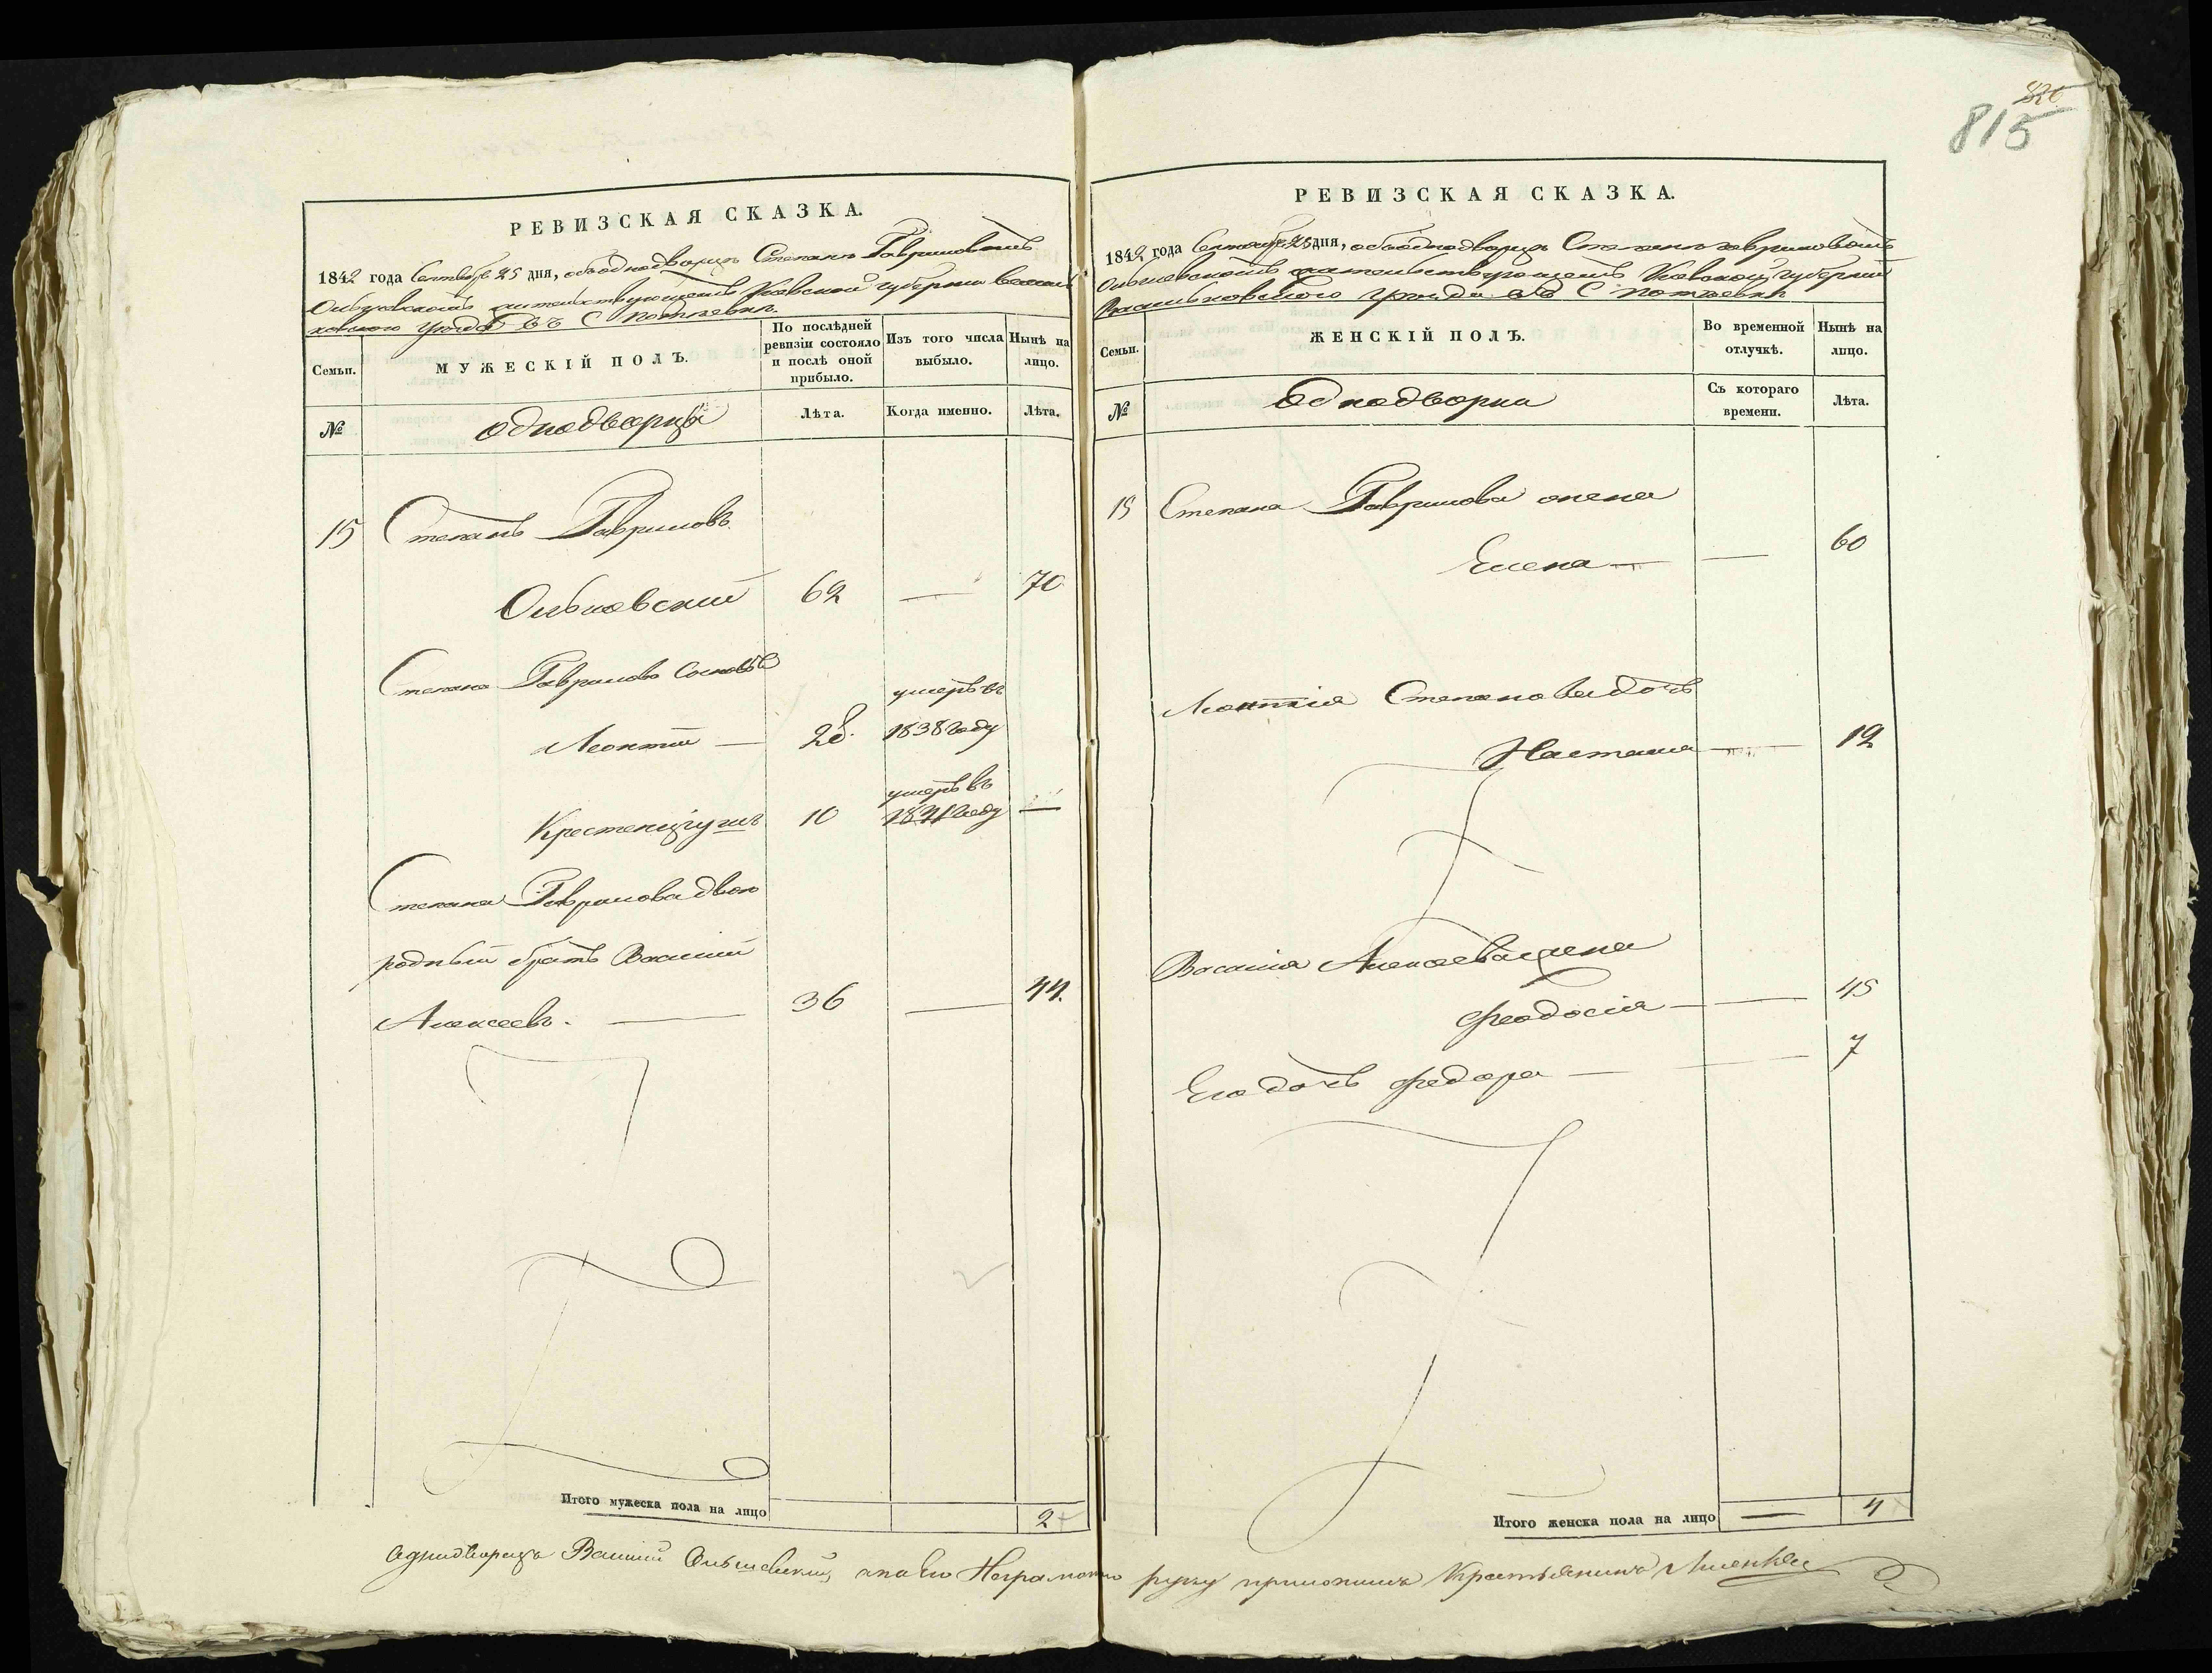 826
815
РЕВИЗСКАЯ СКАЗКА.
1842 года Сентября 25 дня, объ однодворцѣ Степанѣ Гавриловомъ
жительствующемъ Кіевской губерніи Василь
ковского уѣзда въ С Потіевки.
Семьи.
МУЖЕСКІЙ ПОЛЪ.
По послѣдней ревизіи состояло и послѣ оной прибыло.
Изъ того числа выбыло.
Нынѣ на лицо.
№
однодворцы
Лѣта.
Когда именно.
Лѣта.
15 Степанъ Гавриловъ
Ольшевскій 62 — 70
Степана Гаврилова сыновья
умеръ въ
Леонтій — 28. 1838 году
умеръ въ
10 1841 году —
Степана Гаврилова двою
родный братъ Василий
Алексеевъ. — 36 — 44.
Итого мужеска пола на лицо 2
РЕВИЗСКАЯ СКАЗКА.
1842 года Сентября 25 дня, объ однодворцѣ Степанѣ Гавриловомъ
Ольшевскомъ жительствующемъ Кіевской губерніи
Васильковского уѣзда въ С Потіевки
Семьи.
ЖЕНСКІЙ ПОЛЪ.
Во временной отлучкѣ.
Нынѣ на лицо.
№
Однодворки
Съ котораго времени.
Лѣта.
15 Степана Гаврилова жена
Елена — — 60
Леонтія Степанова дочь
Настасия — 12
Василія Алексеева жена
Феодосія — — 45
Его дочь Федора — — 7
Итого женска пола на лицо — 4
однодворецъ Василий Ольшевский а по его Неграмотно руку приложилъ Крестьянинъ